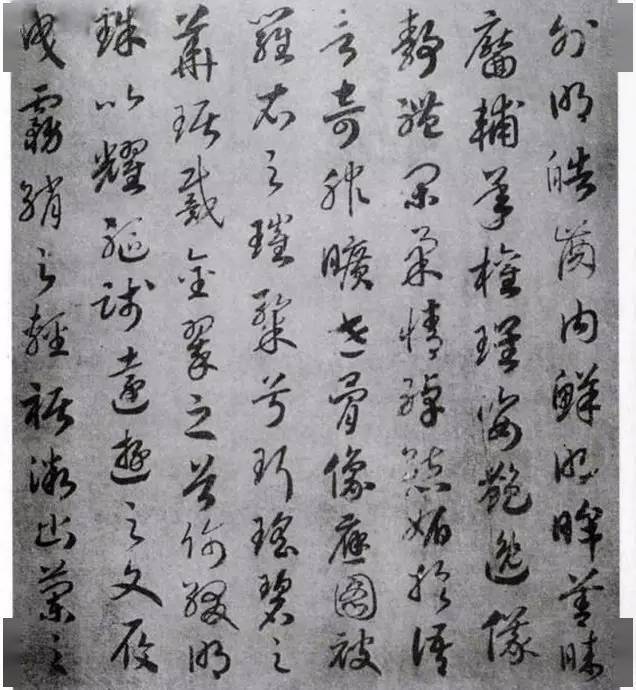 外朗皓齒內鮮明眸善睞
靨輔承權瓌姿艷逸儀
靜體閑柔情綽態媚於語
言奇服曠世骨像應圖被
羅衣之璀粲兮珥瑤碧之
華琚戴金翠之首飾綴明
珠以耀軀踐遠遊之文履
曳霧綃之輕裾微幽蘭之